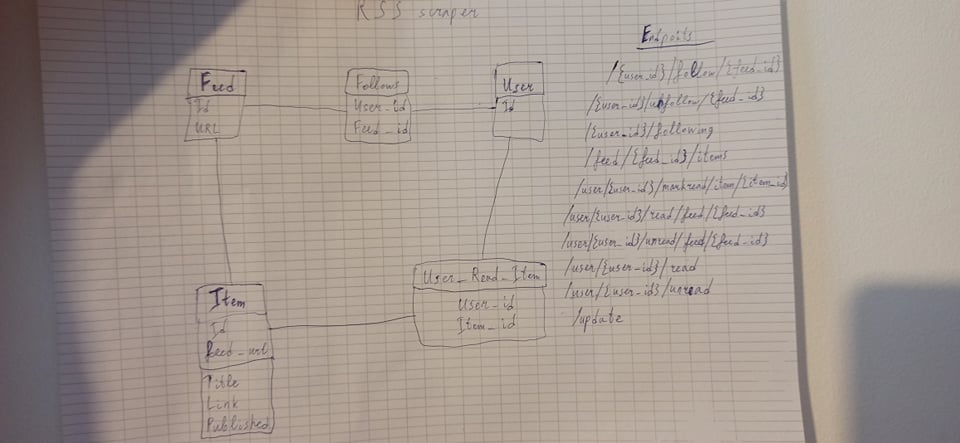 RSS scraper
Feed
Id
URL
Follows
User_id
Feed_id
User
Id
Item
Id
feed_url
Title
Link
Published
User_Read_Item
User_id
Item_id
Endpoits
/{user_id}/follow/{feed_id}
/{user_id}/unfollow/{feed_id}
/{user_id}/following
/feed/{feed_id}/items
/user/{user_id}/markread/item/{item_id}
/user/{user_id}/read/feed/{feed_id}
/user/{user_id}/unread/feed/{feed_id}
/user/{user_id}/read
/user/{user_id}/unread
/update